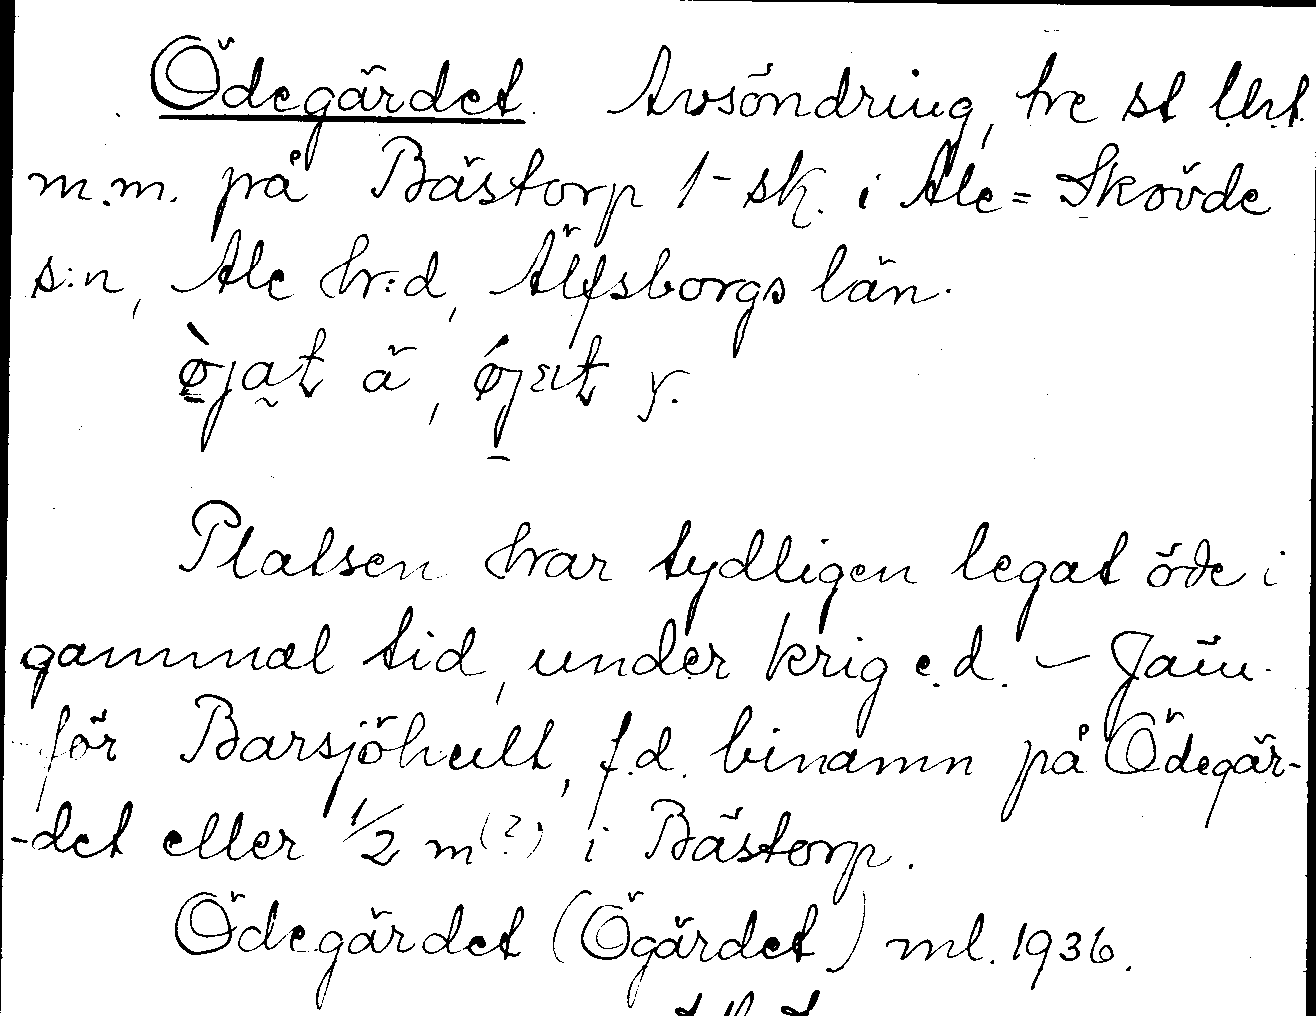 Ödegärdet. Avsöndring, tre st lht
m.m. på Bästorp 1- sk. i Ale=Skövde
s:n, Ale hr:d, Älfsborgs län.
ä, y.
Platsen har tydligen legat öde i
gammal tid, under krig e.d. – Jäm-
för Barsjöhult, f.d. binamn på Ödegär-
-det eller 1/2 m(?) i Bästorp.
Ödegärdet (Ögärdet) ml. 1936.